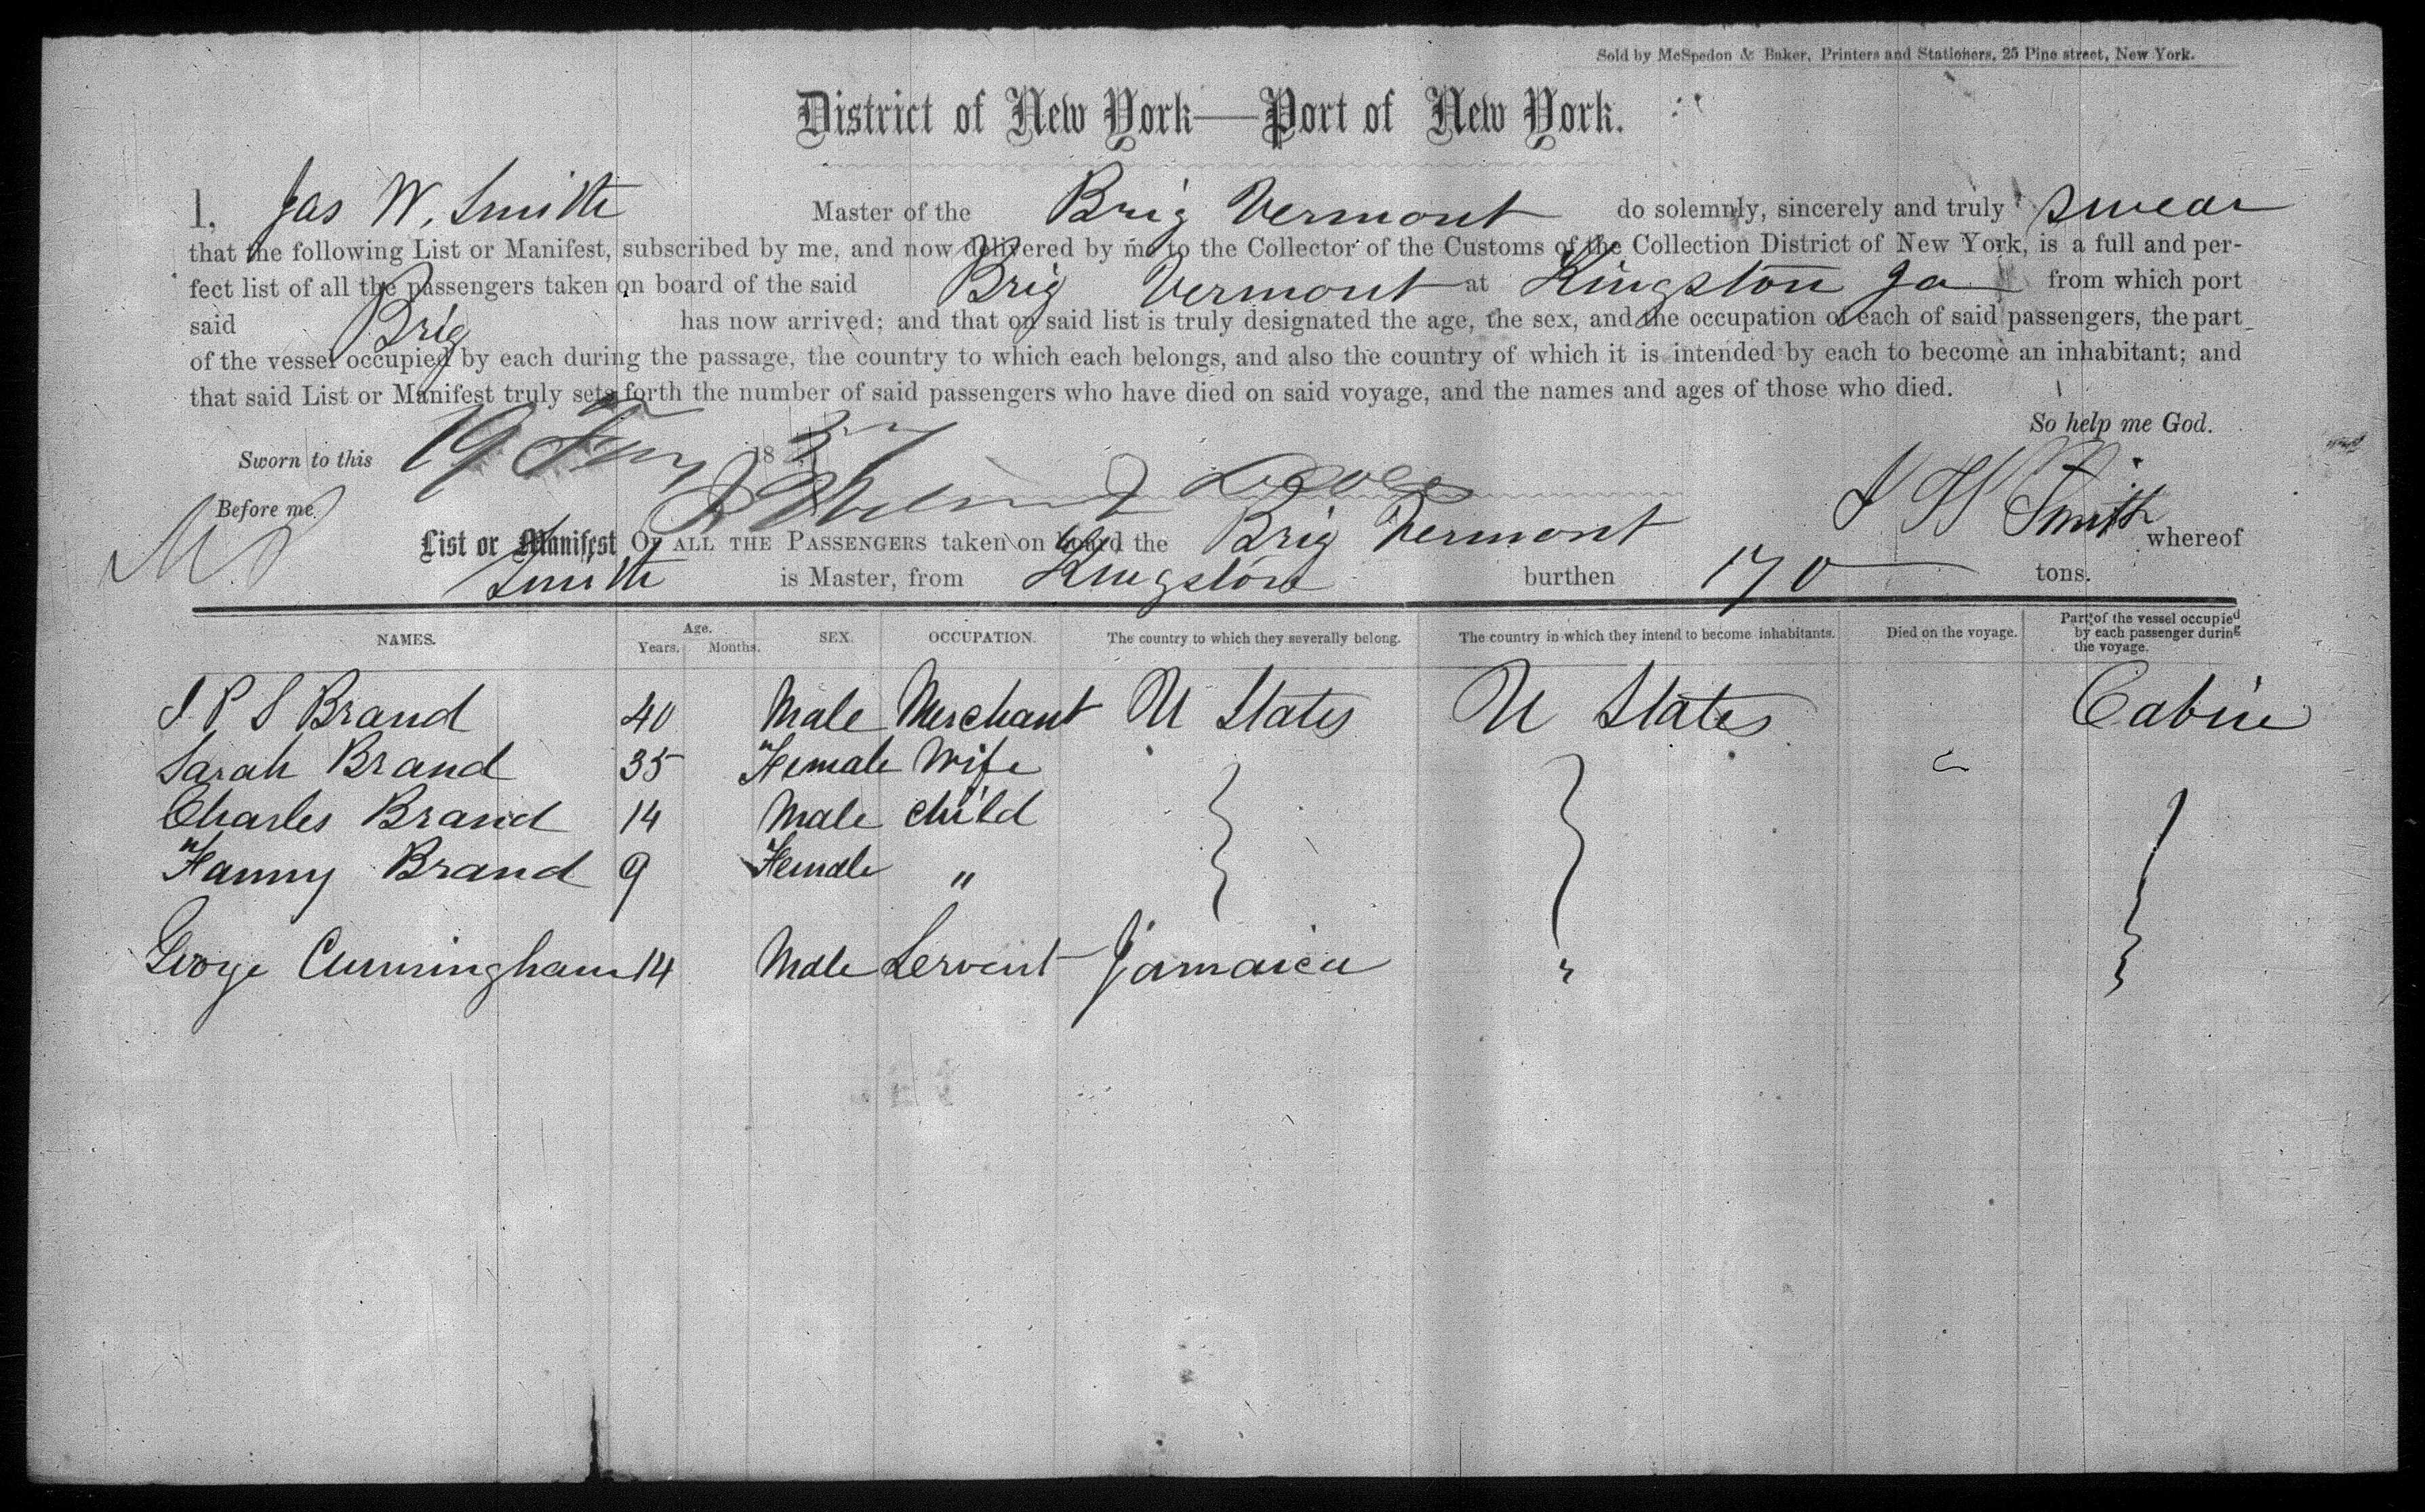 Sold by McSpedon & Baker, Printers and Stationers, 25 Pine street, New York.
District of New York—Port of New York.
I, Jas W, Smith Master of the Brig Vermont do solemnly, sincerely and truly swear
that the following List or Manifest, subscribed by me, and now delivered by me to the Collector of the Customs of the Collection District of New York, is a full and per-
fect list of all the passengers taken on board of the said Brig Vermont at Kingston Ja from which port
said Brig has now arrived; and that on said list is truly designated the age, the sex, and the occupation of each of said passengers, the part
of the vessel occupied by each during the passage, the country to which each belongs, and also the country of which it is intended by each to become an inhabitant; and
that said List or Manifest truly sets forth the number of said passengers who have died on said voyage, and the names and ages of those who died.
So help me God.
Sworn to this 19 18
Before me J W Smith
List or Manifest OF ALL THE PASSENGERS taken on board the Brig Vermont whereof
Smith is Master, from Kingston burthen 170 tons.
NAMES. Age. Years. Months. SEX. OCCUPATION. The country to which they severally belong. The country in which they intend to become inhabitants. Died on the voyage. Part of the vessel occupied by each passenger during the voyage.
J. P S Brand 40 Male Merchant U States U States Cabin
Sarah Brand 35 Female Wife
Charles Brand 14 Male child
Fanny Brand 9 Female "
George Cunningham 14 Male Servent Jamaica "